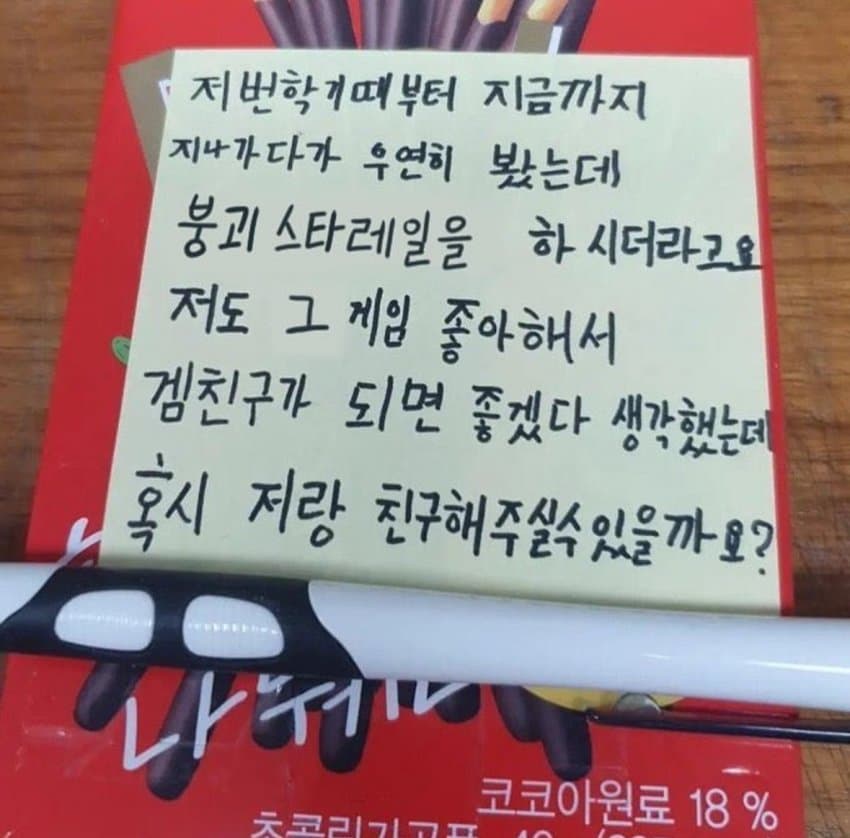 저번학기때부터 지금까지
지나가다가 우연히 봤는데
붕괴 스타레일을 하시더라고요
저도 그 게임 좋아해서
겜친구가 되면 좋겠다 생각했는데
혹시 저랑 친구해주실수있을까요?
코코아원료 18 %